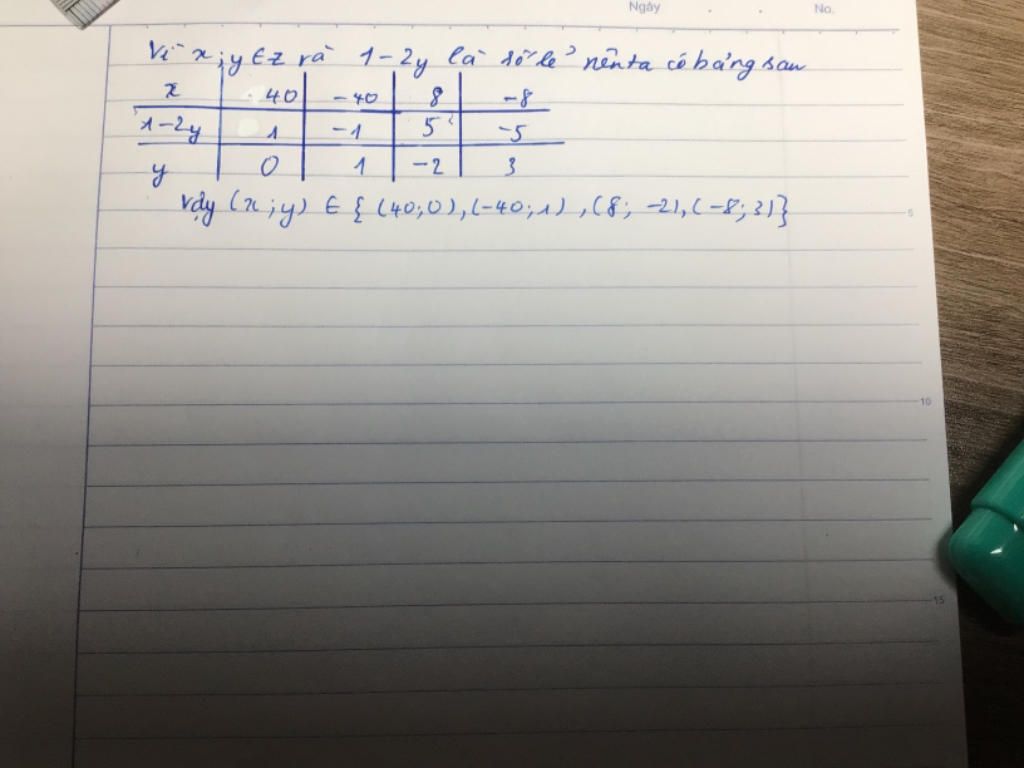 Ngày . . No.
Vì x;y ∈ Z và 1-2y là số lẻ nên ta có bảng sau
x | 40 | -40 | 8 | -8
1-2y | 1 | -1 | 5 | -5
y | 0 | 1 | -2 | 3
Vậy (x;y) ∈ {(40;0),(-40;1),(8;-2),(-8;3)}
5
10
15